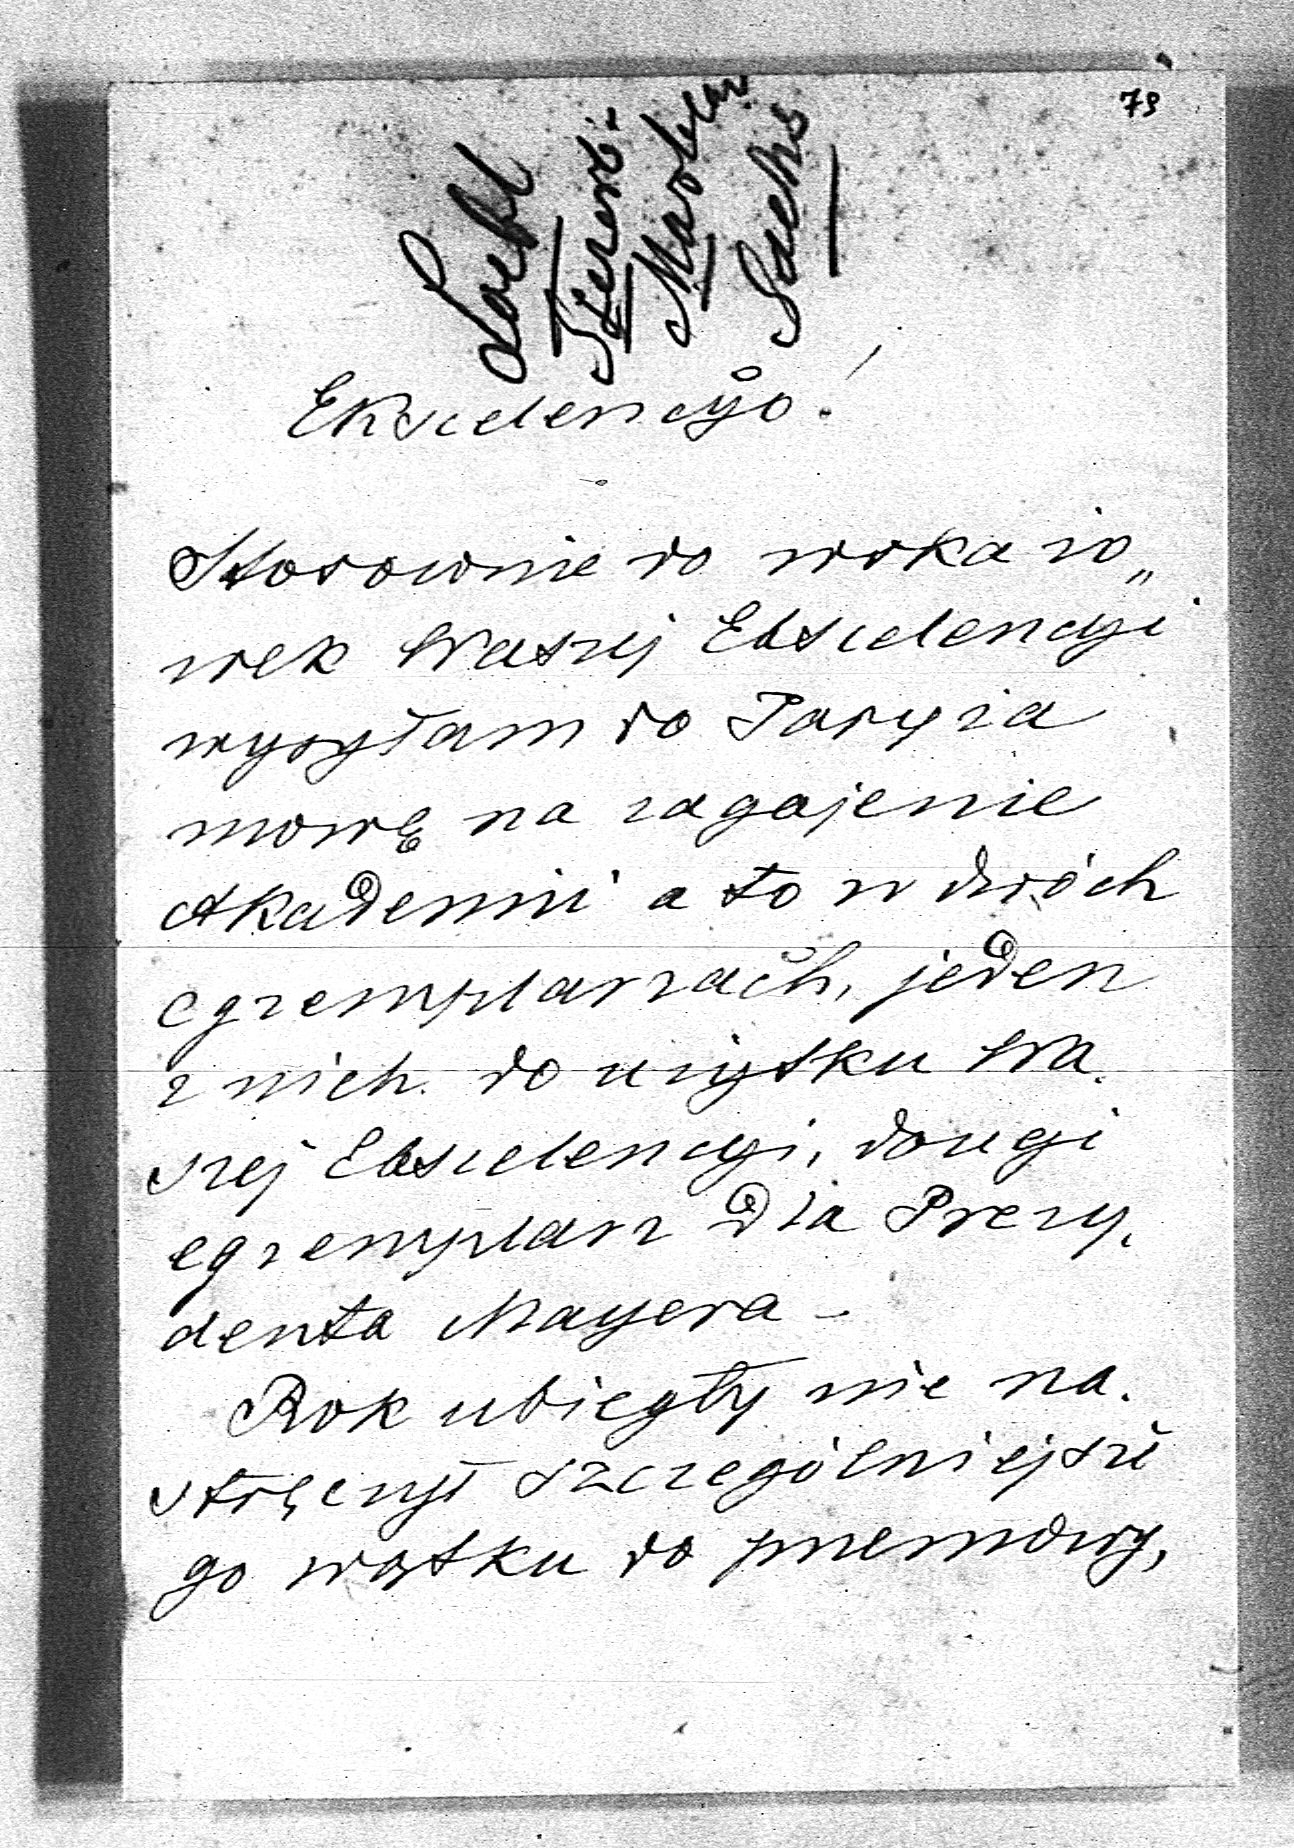 79
Loebl
Sacks
Ekscelencyo!
Stosownie do wskazó„
wek Waszej Ekscelencyi
wysyłam do Paryża
mowę na zagajenie
Akademii a to w dwóch
egzemplarzach, jeden
z nich do użytku Wa.
szej Ekscelencyi, drugi
egzemplarz dla Prezy.
denta Mayera –
Rok ubiegły nie na.
stręczył szczególniejsze
go wątku do przemowy,